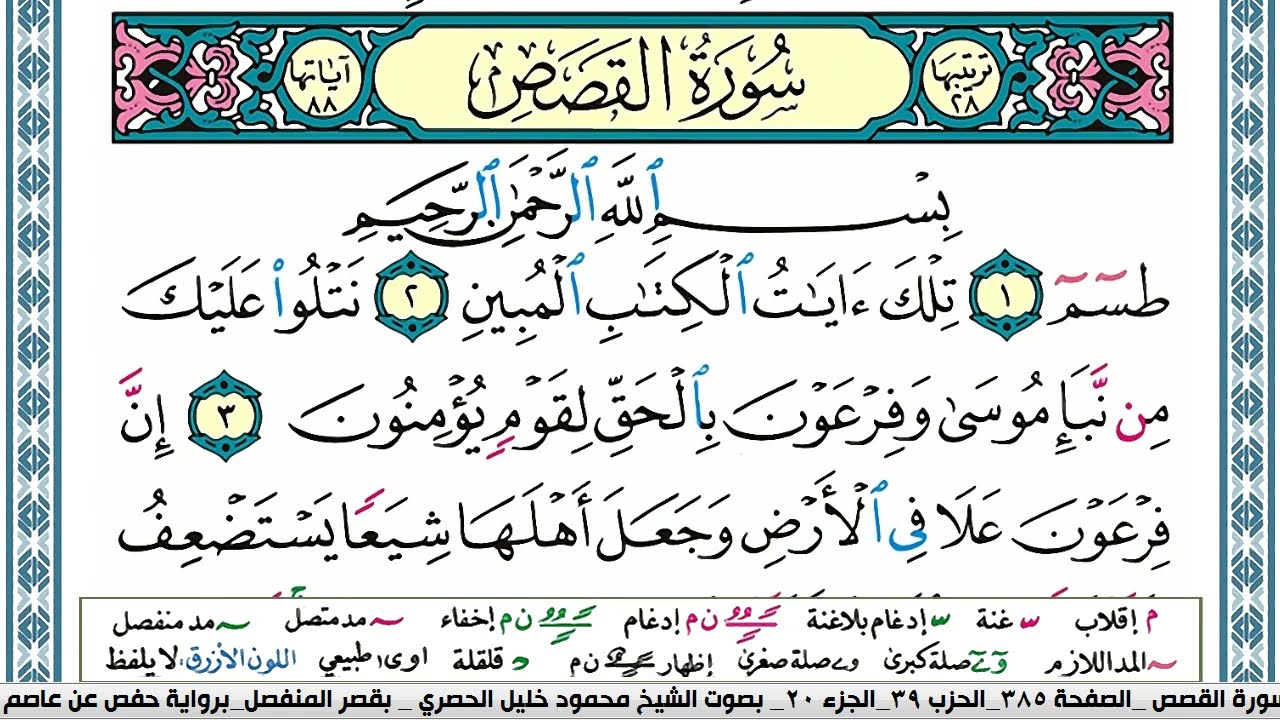 ترتيبها ٢٨
سُورَةُ القَصَصِ
آيَاتها ٨٨
بِسْمِ ٱللَّهِ ٱلرَّحْمَٰنِ ٱلرَّحِيمِ
طسٓمٓ ١ تِلْكَ ءَايَٰتُ ٱلْكِتَٰبِ ٱلْمُبِينِ ٢ نَتْلُوا۟ عَلَيْكَ
مِن نَّبَإِ مُوسَىٰ وَفِرْعَوْنَ بِٱلْحَقِّ لِقَوْمٍ يُؤْمِنُونَ ٣ إِنَّ
فِرْعَوْنَ عَلَا فِى ٱلْأَرْضِ وَجَعَلَ أَهْلَهَا شِيَعًا يَسْتَضْعِفُ
م إقلاب غنة إدغام بلاغنة ن م إدغام ن م إخفاء مد متصل مد منفصل
المد اللازم صلة كبرى صلة صغرى إظهار ن م قلقلة اوى طبيعي اللون الأزرق لا يلفظ
سورة القصص _الصفحة ٣٨٥_الحزب ٣٩_الجزء ٢٠_ بصوت الشيخ محمود خليل الحصري _ بقصر المنفصل_برواية حفص عن عاصم